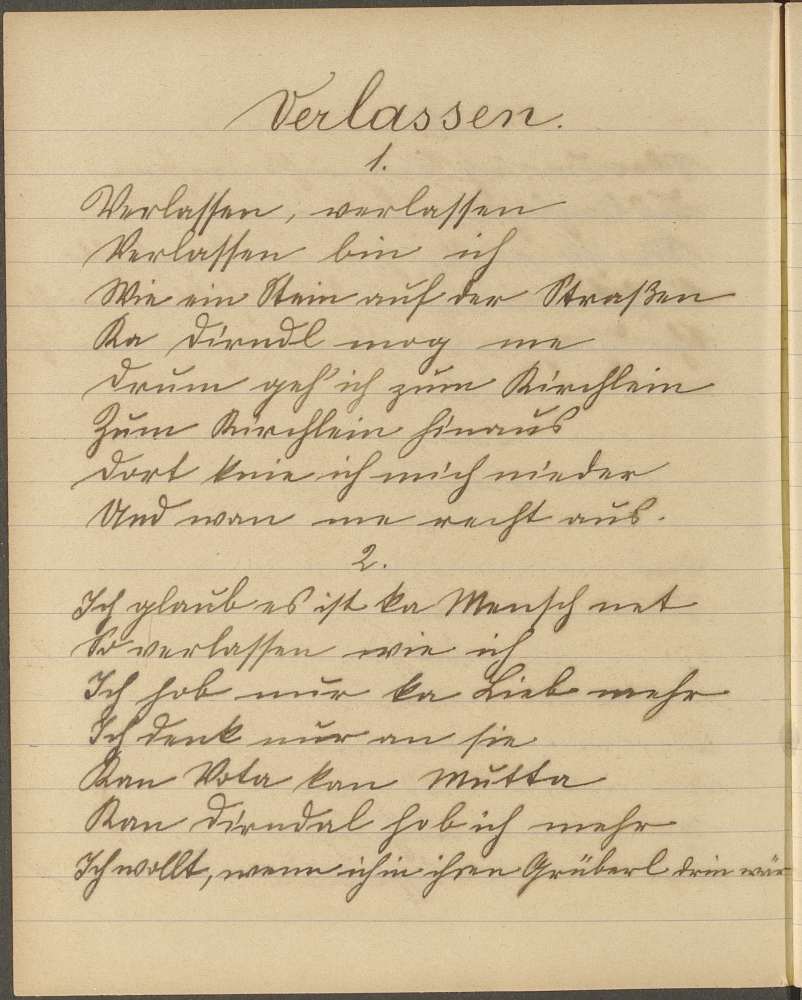 Verlassen.
1.
Verlassen, verlassen
Verlassen bin ich
Wie ein Stein auf der Straßen
Ka Dirndl mog me
Drum geh' ich zum Kirchlein
Zum Kirchlein hinaus
Dort knie ich mich nieder
Und wan me recht aus.
2.
Ich glaub es ist ka Mensch net
So verlassen wie ich
Ich hob nur ka Lieb mehr
Ich denk nur an sie
Kan Vota kan Mutta
Kan Dirndal hob ich mehr
Ich wollt, wenn ich in ihren Grüberl drin wär